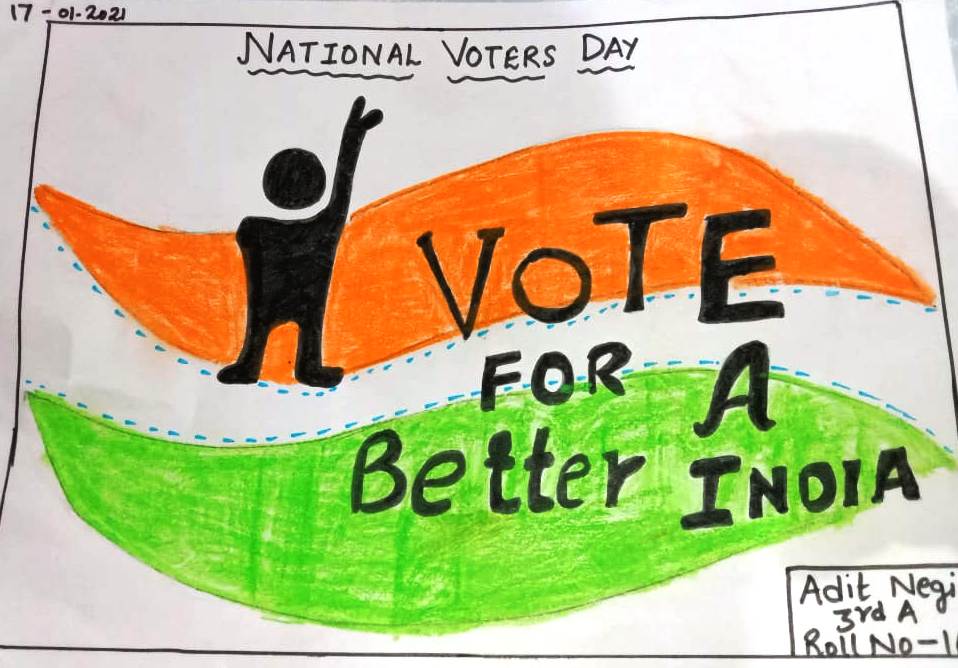 17-01-2021
NATIONAL VOTERS DAY
VOTE
FOR A
Better INDIA
Adit Negi
3rd A
Roll No-